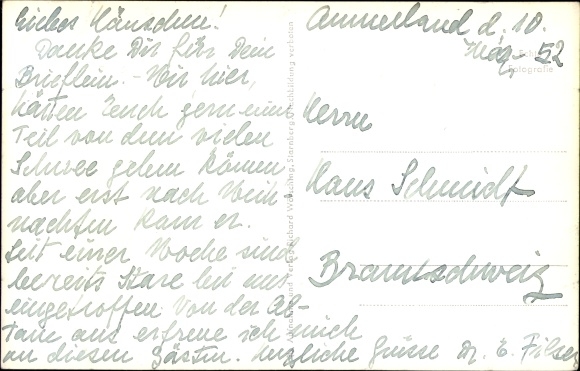 Liebes Hänschen!
Danke Dir für Dein
Brieflein. - Wir hier,
hätten Euch gern einen
Teil von dem vielen
Schnee geben können
aber erst nach Weih-
nachten kam er.
Seit einer Woche sind
bereits Stare bei uns
eingetroffen. Von der Al-
tane aus erfreue ich mich
an diesen Gästen. Herzliche Grüsse Dr. E. Filser
Ammerland d. 10.
März 52
Herrn
Hans Schmidt
Braunschweig
Fotografie
Verlag Richard Wörsching, Starnberg, Nachbildung verboten